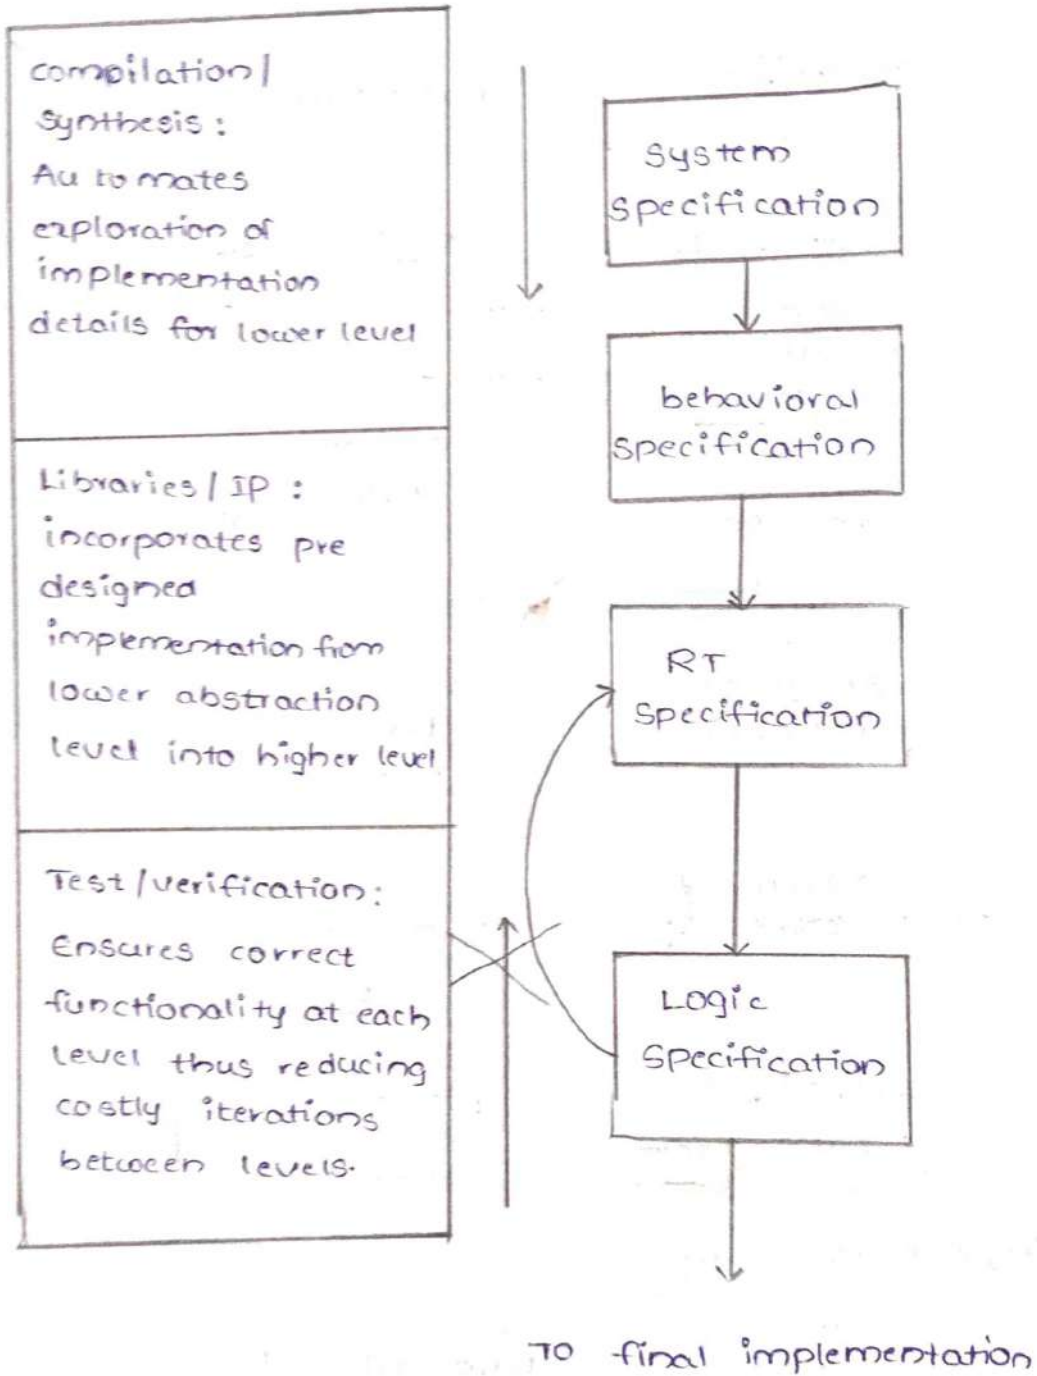 compilation/
synthesis:
Automates
exploration of
implementation
details for lower level
Libraries/IP :
incorporates pre
designed
implementation from
lower abstraction
level into higher level
Test/verification:
Ensures correct
functionality at each
level thus reducing
costly iterations
between levels.
system
specification
behavioral
specification
RT
specification
Logic
specification
TO final implementation